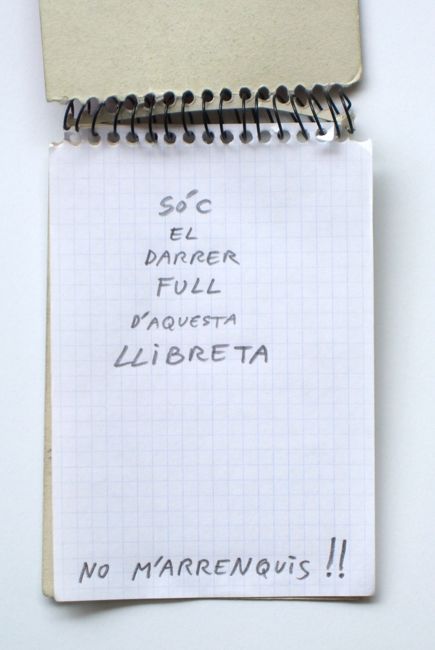 SÓC
EL
DARRER
FULL
D'AQUESTA
LLiBRETA
NO M'ARRENQUiS !!